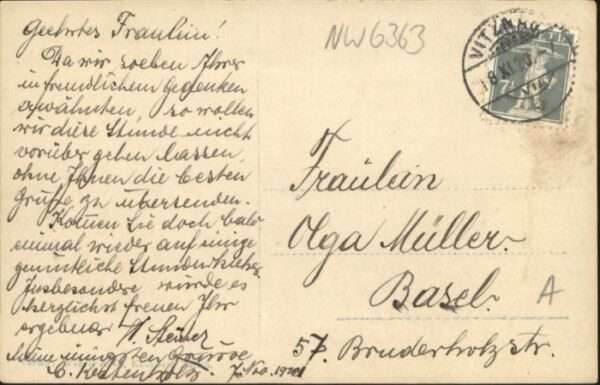 Geehrtes Fräulein!
Da wir soeben Ihrer
in freundlichem Gedenken
erwähnten, so wollen
wir diese Stunde nicht
vorüber gehen lassen,
ohne Ihnen die besten
Grüße zu übersenden.
Komen Sie doch bald
einmal wieder auf einige
gemütliche
Insbesondere würde es
herzlichst freuen Ihr
ergebener Steiner
7. Nov. 1920
NW6363
VITZNAU
18.XI.20
Fräulein
Olga Müller.
Basel.
A
57. Bruderholzstr.